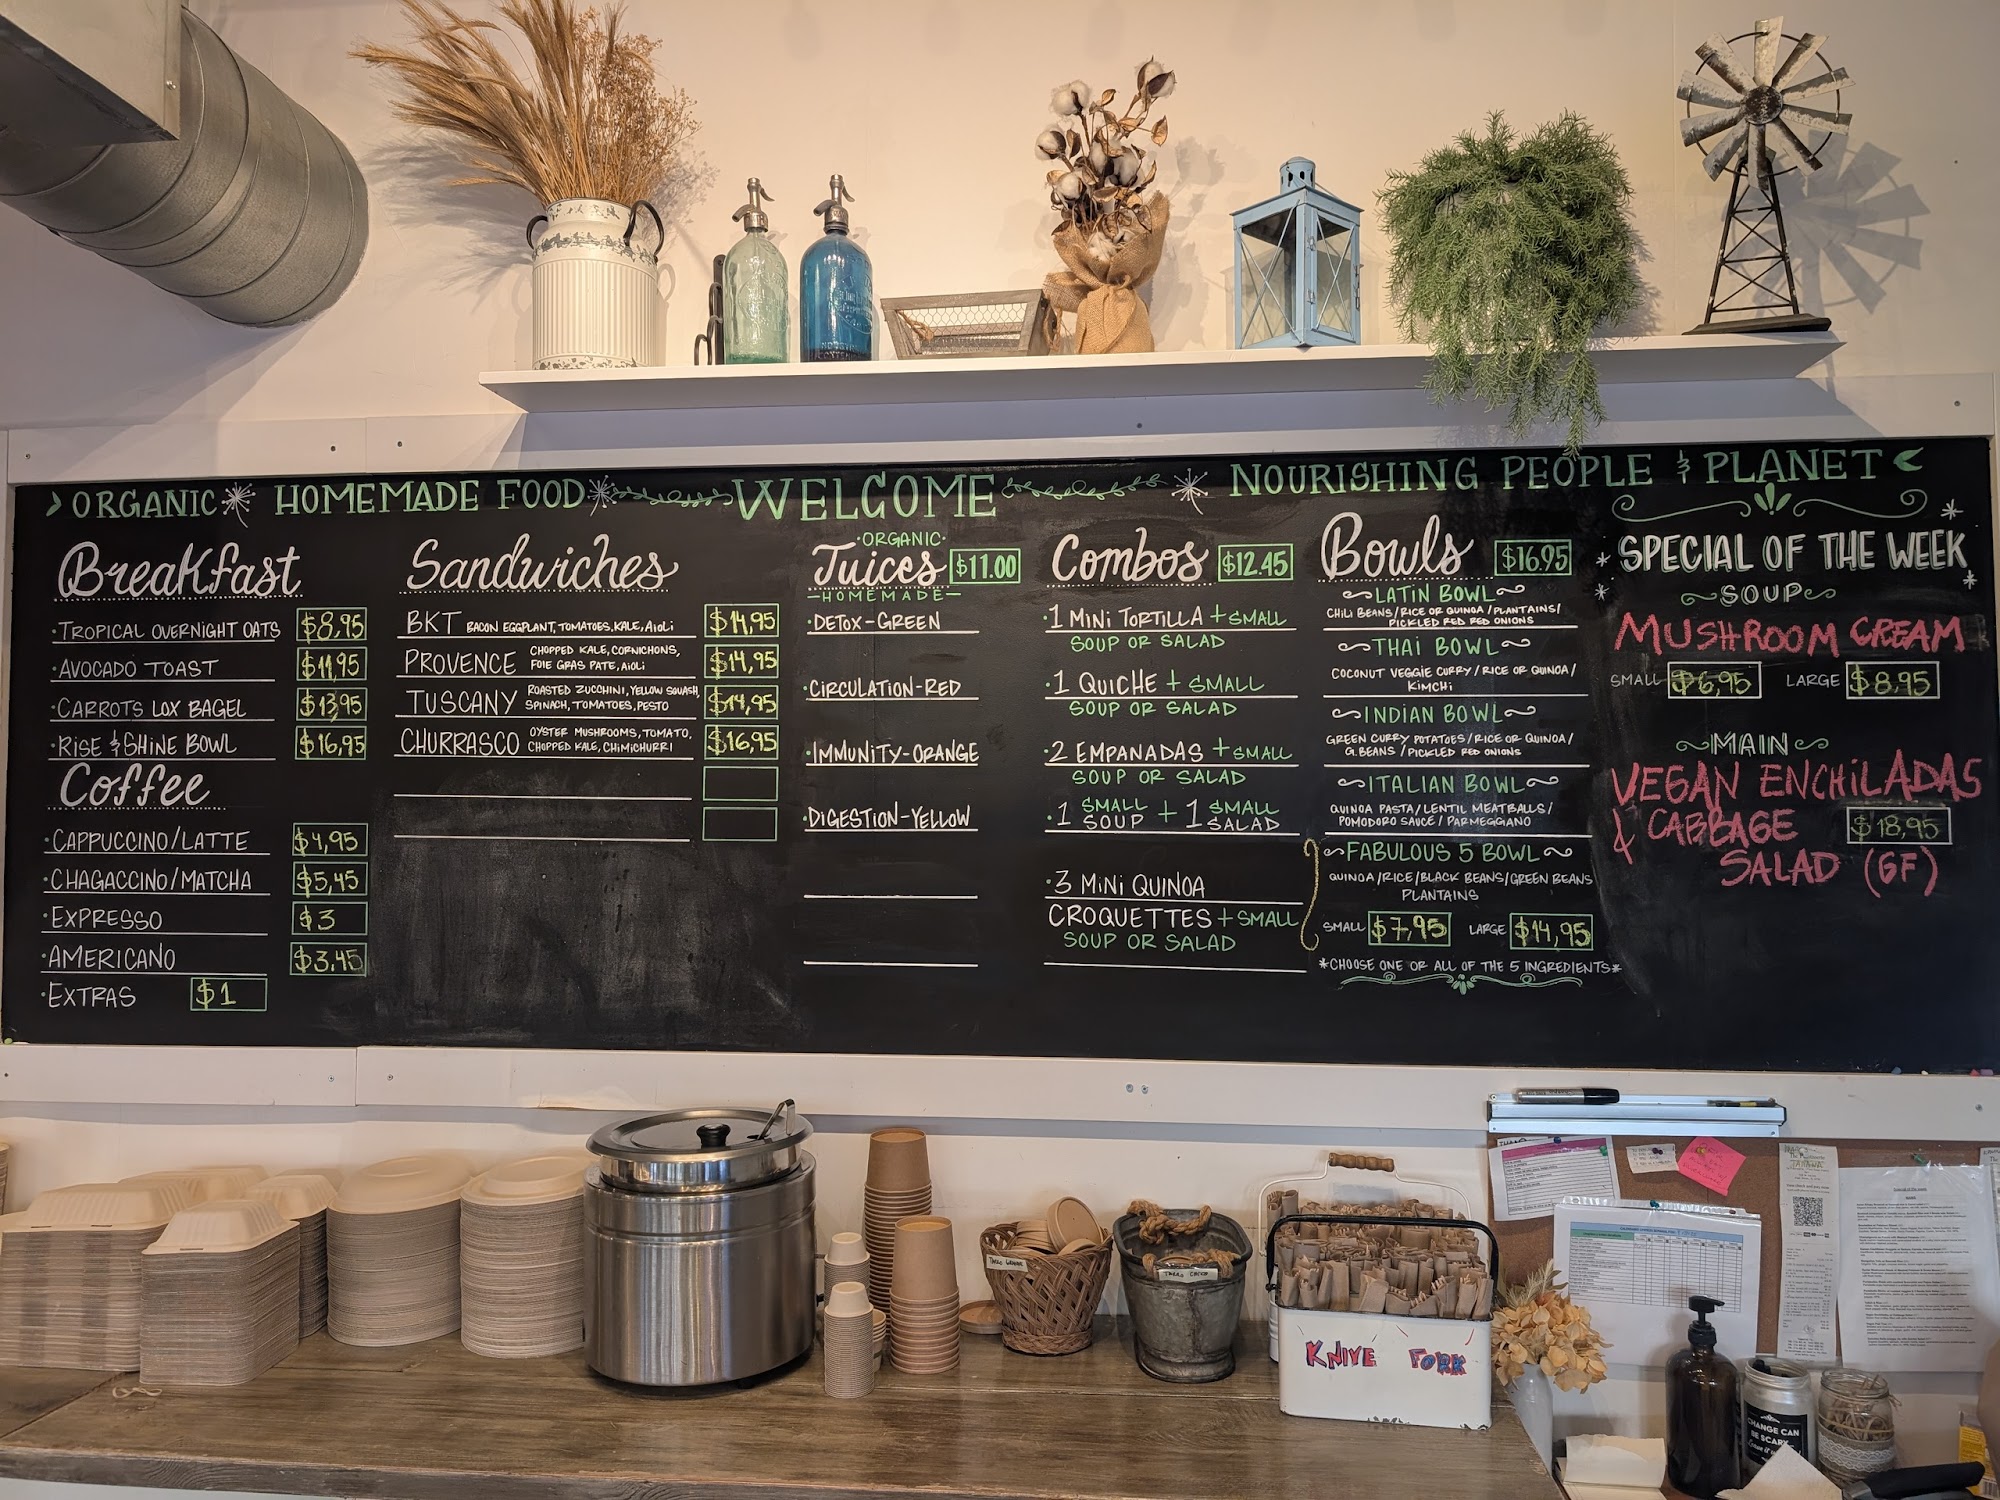 ORGANIC HOMEMADE FOOD WELCOME NOURISHING PEOPLE & PLANET
Breakfast
·TROPICAL OVERNIGHT OATS $8,95
·AVOCADO TOAST $11,95
·CARROTS LOX BAGEL $13,95
·RISE & SHINE BOWL $16,95
Coffee
·CAPPUCCINO/LATTE $4,95
·CHAGACCINO/MATCHA $5,45
·EXPRESSO $3
·AMERICANO $3.45
·EXTRAS $1
Sandwiches
BKT BACON EGGPLANT, TOMATOES, KALE, AIOLI $14,95
PROVENCE CHOPPED KALE, CORNICHONS,
FOIE GRAS PATE, AIOLI $14,95
TUSCANY ROASTED ZUCCHINI, YELLOW SQUASH,
SPINACH, TOMATOES, PESTO $14,95
CHURRASCO OYSTER MUSHROOMS, TOMATO,
CHOPPED KALE, CHIMICHURRI $16,95
·ORGANIC·
Juices $11.00
–HOMEMADE–
·DETOX-GREEN
·CIRCULATION-RED
·IMMUNITY-ORANGE
·DIGESTION-YELLOW
Combos $12.45
·1 MINI TORTILLA + SMALL
SOUP OR SALAD
·1 QUICHE + SMALL
SOUP OR SALAD
·2 EMPANADAS + SMALL
SOUP OR SALAD
·1 SMALL SOUP + 1 SMALL SALAD
·3 MINI QUINOA
CROQUETTES + SMALL
SOUP OR SALAD
Bowls $16.95
LATIN BOWL
CHILI BEANS/RICE OR QUINOA/PLANTAINS/
PICKLED RED RED ONIONS
THAI BOWL
COCONUT VEGGIE CURRY/RICE OR QUINOA/
KIMCHI
INDIAN BOWL
GREEN CURRY POTATOES/RICE OR QUINOA/
G.BEANS/PICKLED RED ONIONS
ITALIAN BOWL
QUINOA PASTA/LENTIL MEATBALLS/
POMODORO SAUCE/PARMEGGIANO
FABULOUS 5 BOWL
QUINOA/RICE/BLACK BEANS/GREEN BEANS
PLANTAINS
SMALL $7,95 LARGE $14,95
*CHOOSE ONE OR ALL OF THE 5 INGREDIENTS*
SPECIAL OF THE WEEK
SOUP
MUSHROOM CREAM
SMALL $6,95 LARGE $8.95
MAIN
VEGAN ENCHILADAS
& CABBAGE $18,95
SALAD (GF)
KNIVE FORK
CHANGE CAN
BE SCARY